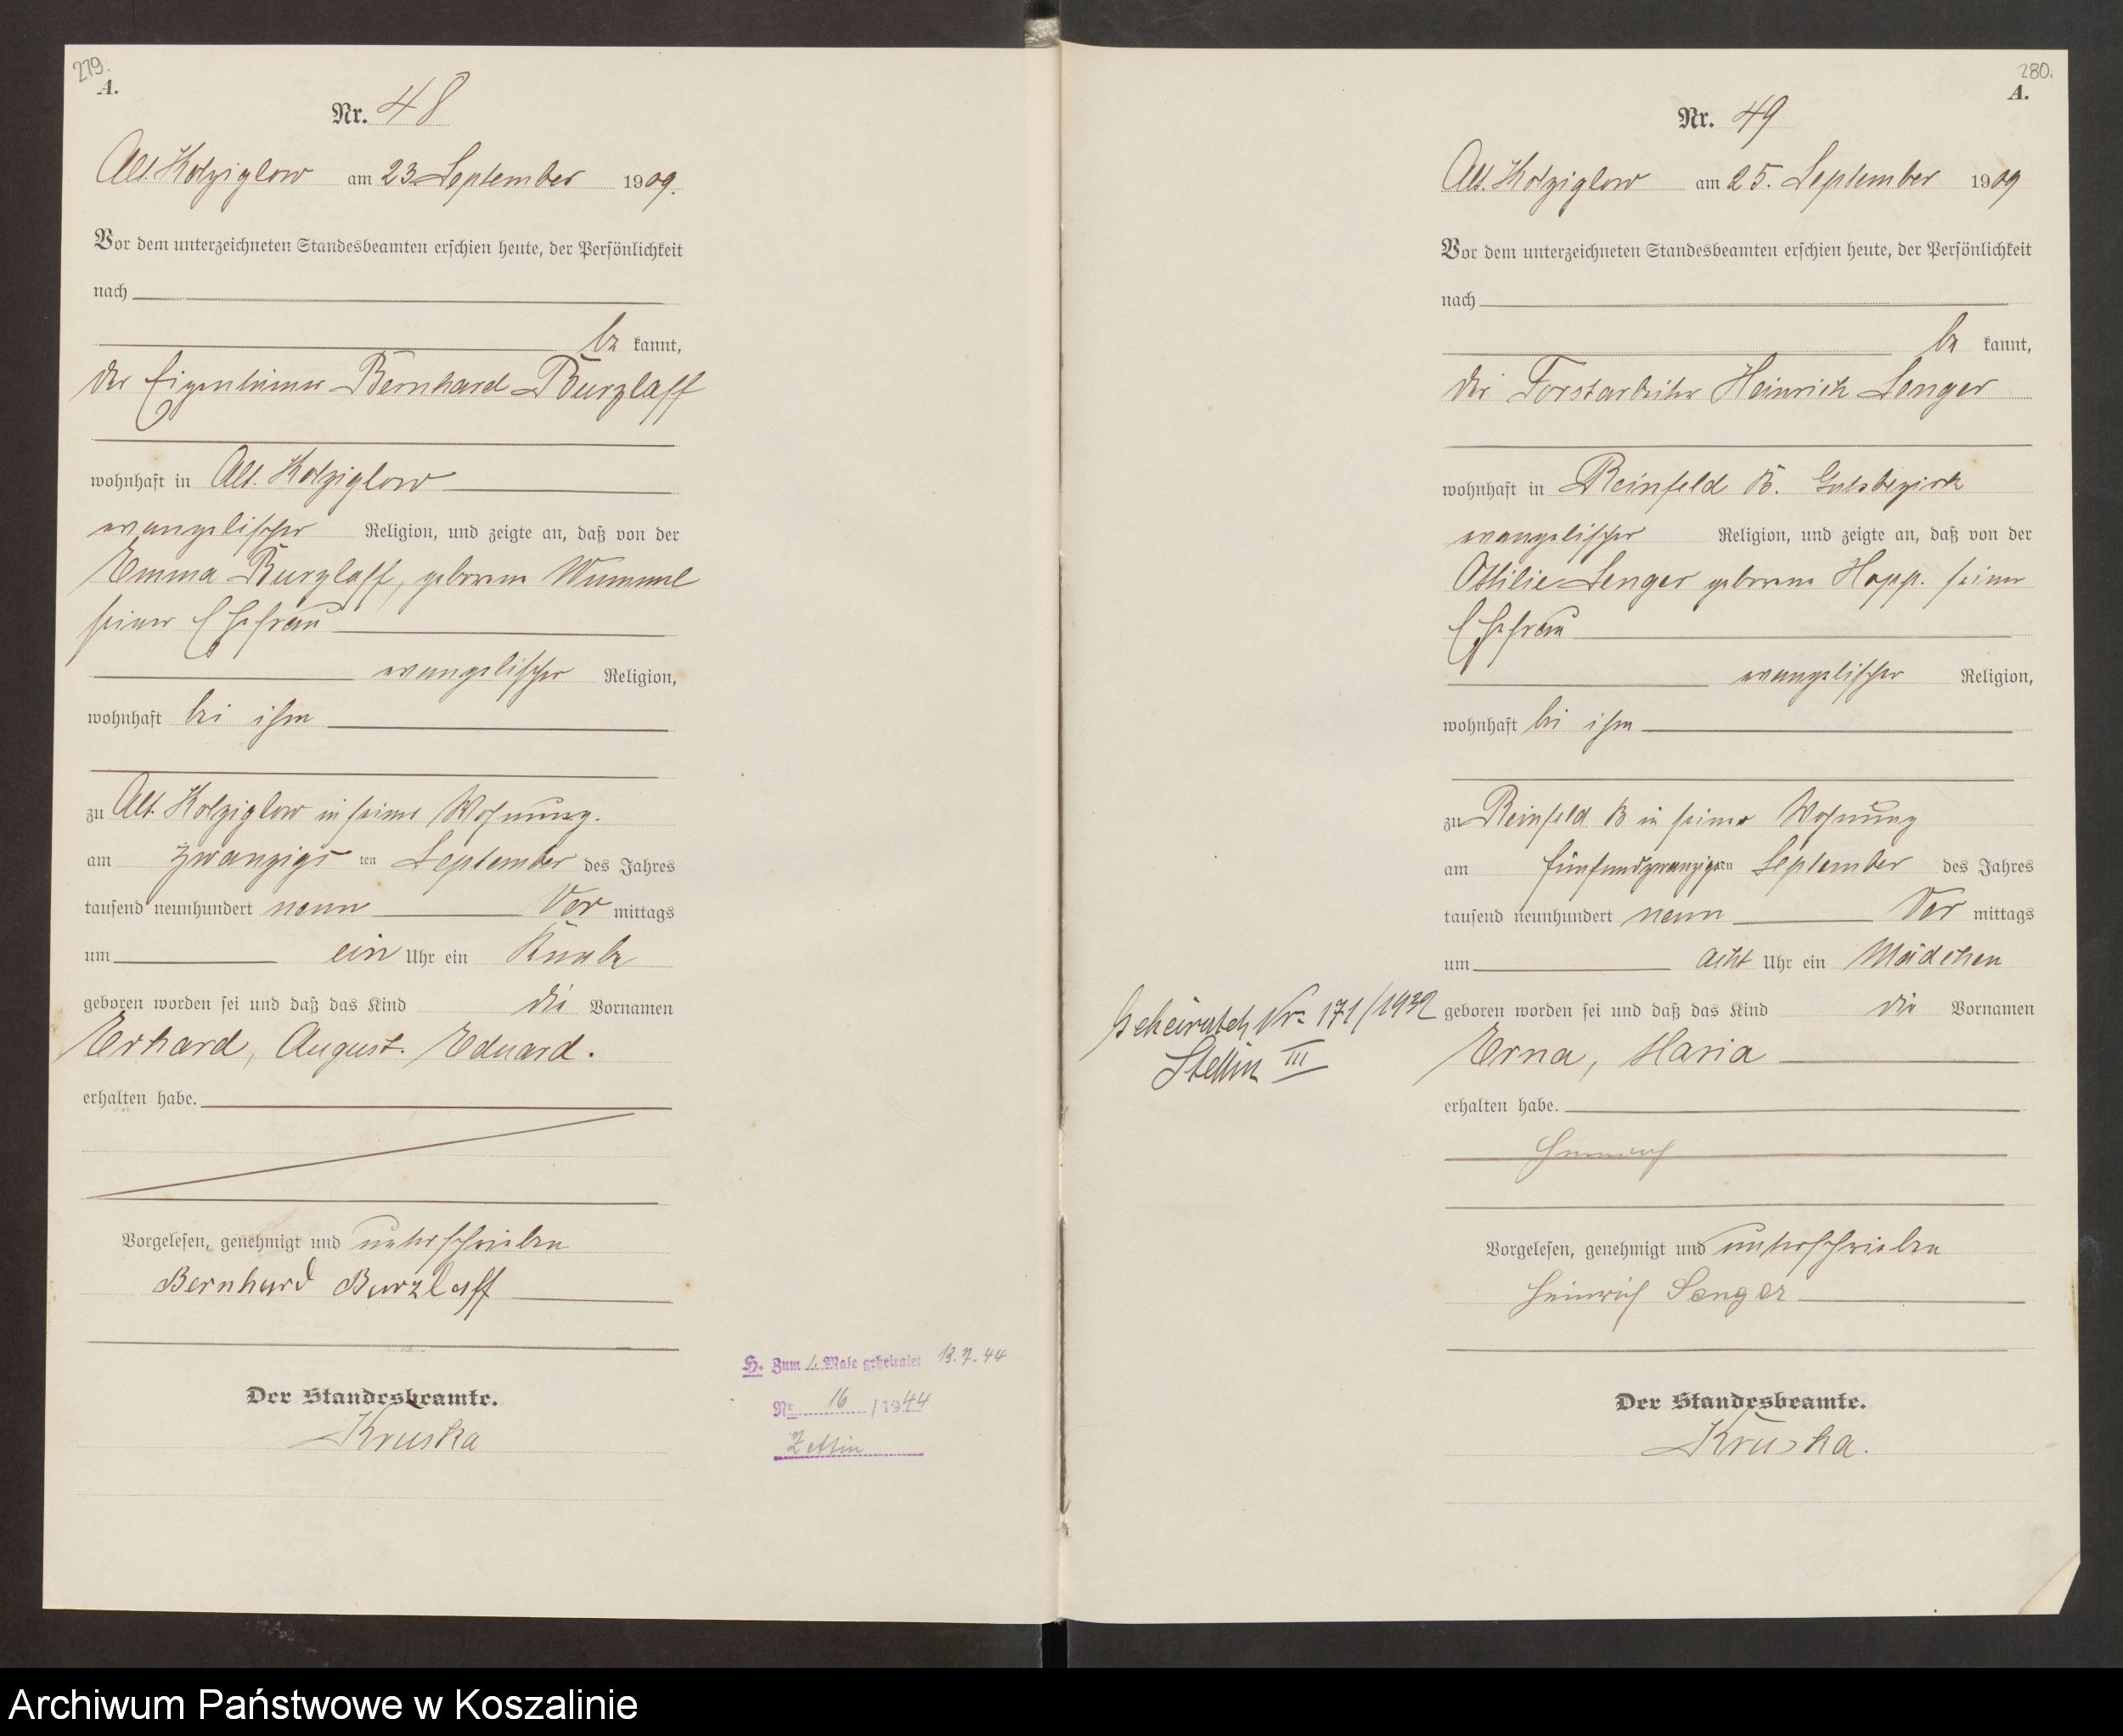 279.
A.
Nr. 48
Alt. Kolziglow am 23 September 1909.
Vor dem unterzeichneten Standesbeamten erschien heute, der Persönlichkeit
nach
be kannt,
der Eigentümer Bernhard Burzlaff
wohnhaft in Alt. Kolziglow
evangelischer Religion, und zeigte an, daß von der
Emma Burzlaff, geborene Wummel
seiner Ehefrau
evangelischer Religion,
wohnhaft bei ihm
zu Alt. Kolziglow in seiner Wohnung.
am zwanzigs ten September des Jahres
tausend neunhundert neun Vor mittags
um ein Uhr ein Knabe
geboren worden sei und daß das Kind die Vornamen
Erhard, August. Eduard.
erhalten habe.
Vorgelesen, genehmigt und unterschrieben
Bernhard Burzlaff
Der Standesbeamte.
Kruska
H. Zum 1. Male geheiratet 13.7.44
Nr. 16 / 1944
Zettin
280.
A.
Nr. 49
Alt. Kolziglow am 25. September 1909
Vor dem unterzeichneten Standesbeamten erschien heute, der Persönlichkeit
nach
be kannt,
der Forstarbeiter Heinrich Senger
wohnhaft in Reinfeld B. Gutsbezirk
evangelischer Religion, und zeigte an, daß von der
Ottilie Senger geborene Hopp. seiner
Ehefrau
evangelischer Religion,
wohnhaft bei ihm
zu Reinfeld B in seiner Wohnung
am fünfundzwanzigsten September des Jahres
tausend neunhundert neun Vor mittags
um acht Uhr ein Mädchen
geboren worden sei und daß das Kind die Vornamen
Erna, Maria
erhalten habe.
Heinrich
Vorgelesen, genehmigt und unterschrieben
Heinrich Senger
Der Standesbeamte.
Kruska.
Geheiratet Nr. 171/1932
Stettin III
Archiwum Państwowe w Koszalinie